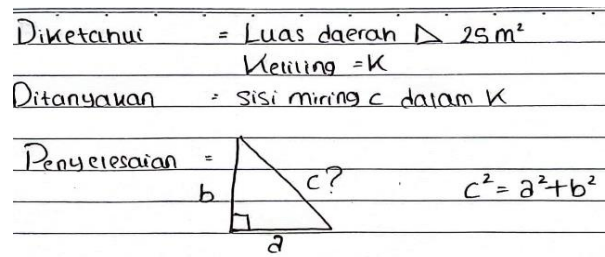 Diketahui = Luas daerah ◺ 25 m²
Keliling = K
Ditanyakan : sisi miring c dalam K
Penyelesaian =
b
c?
a
c² = a² + b²